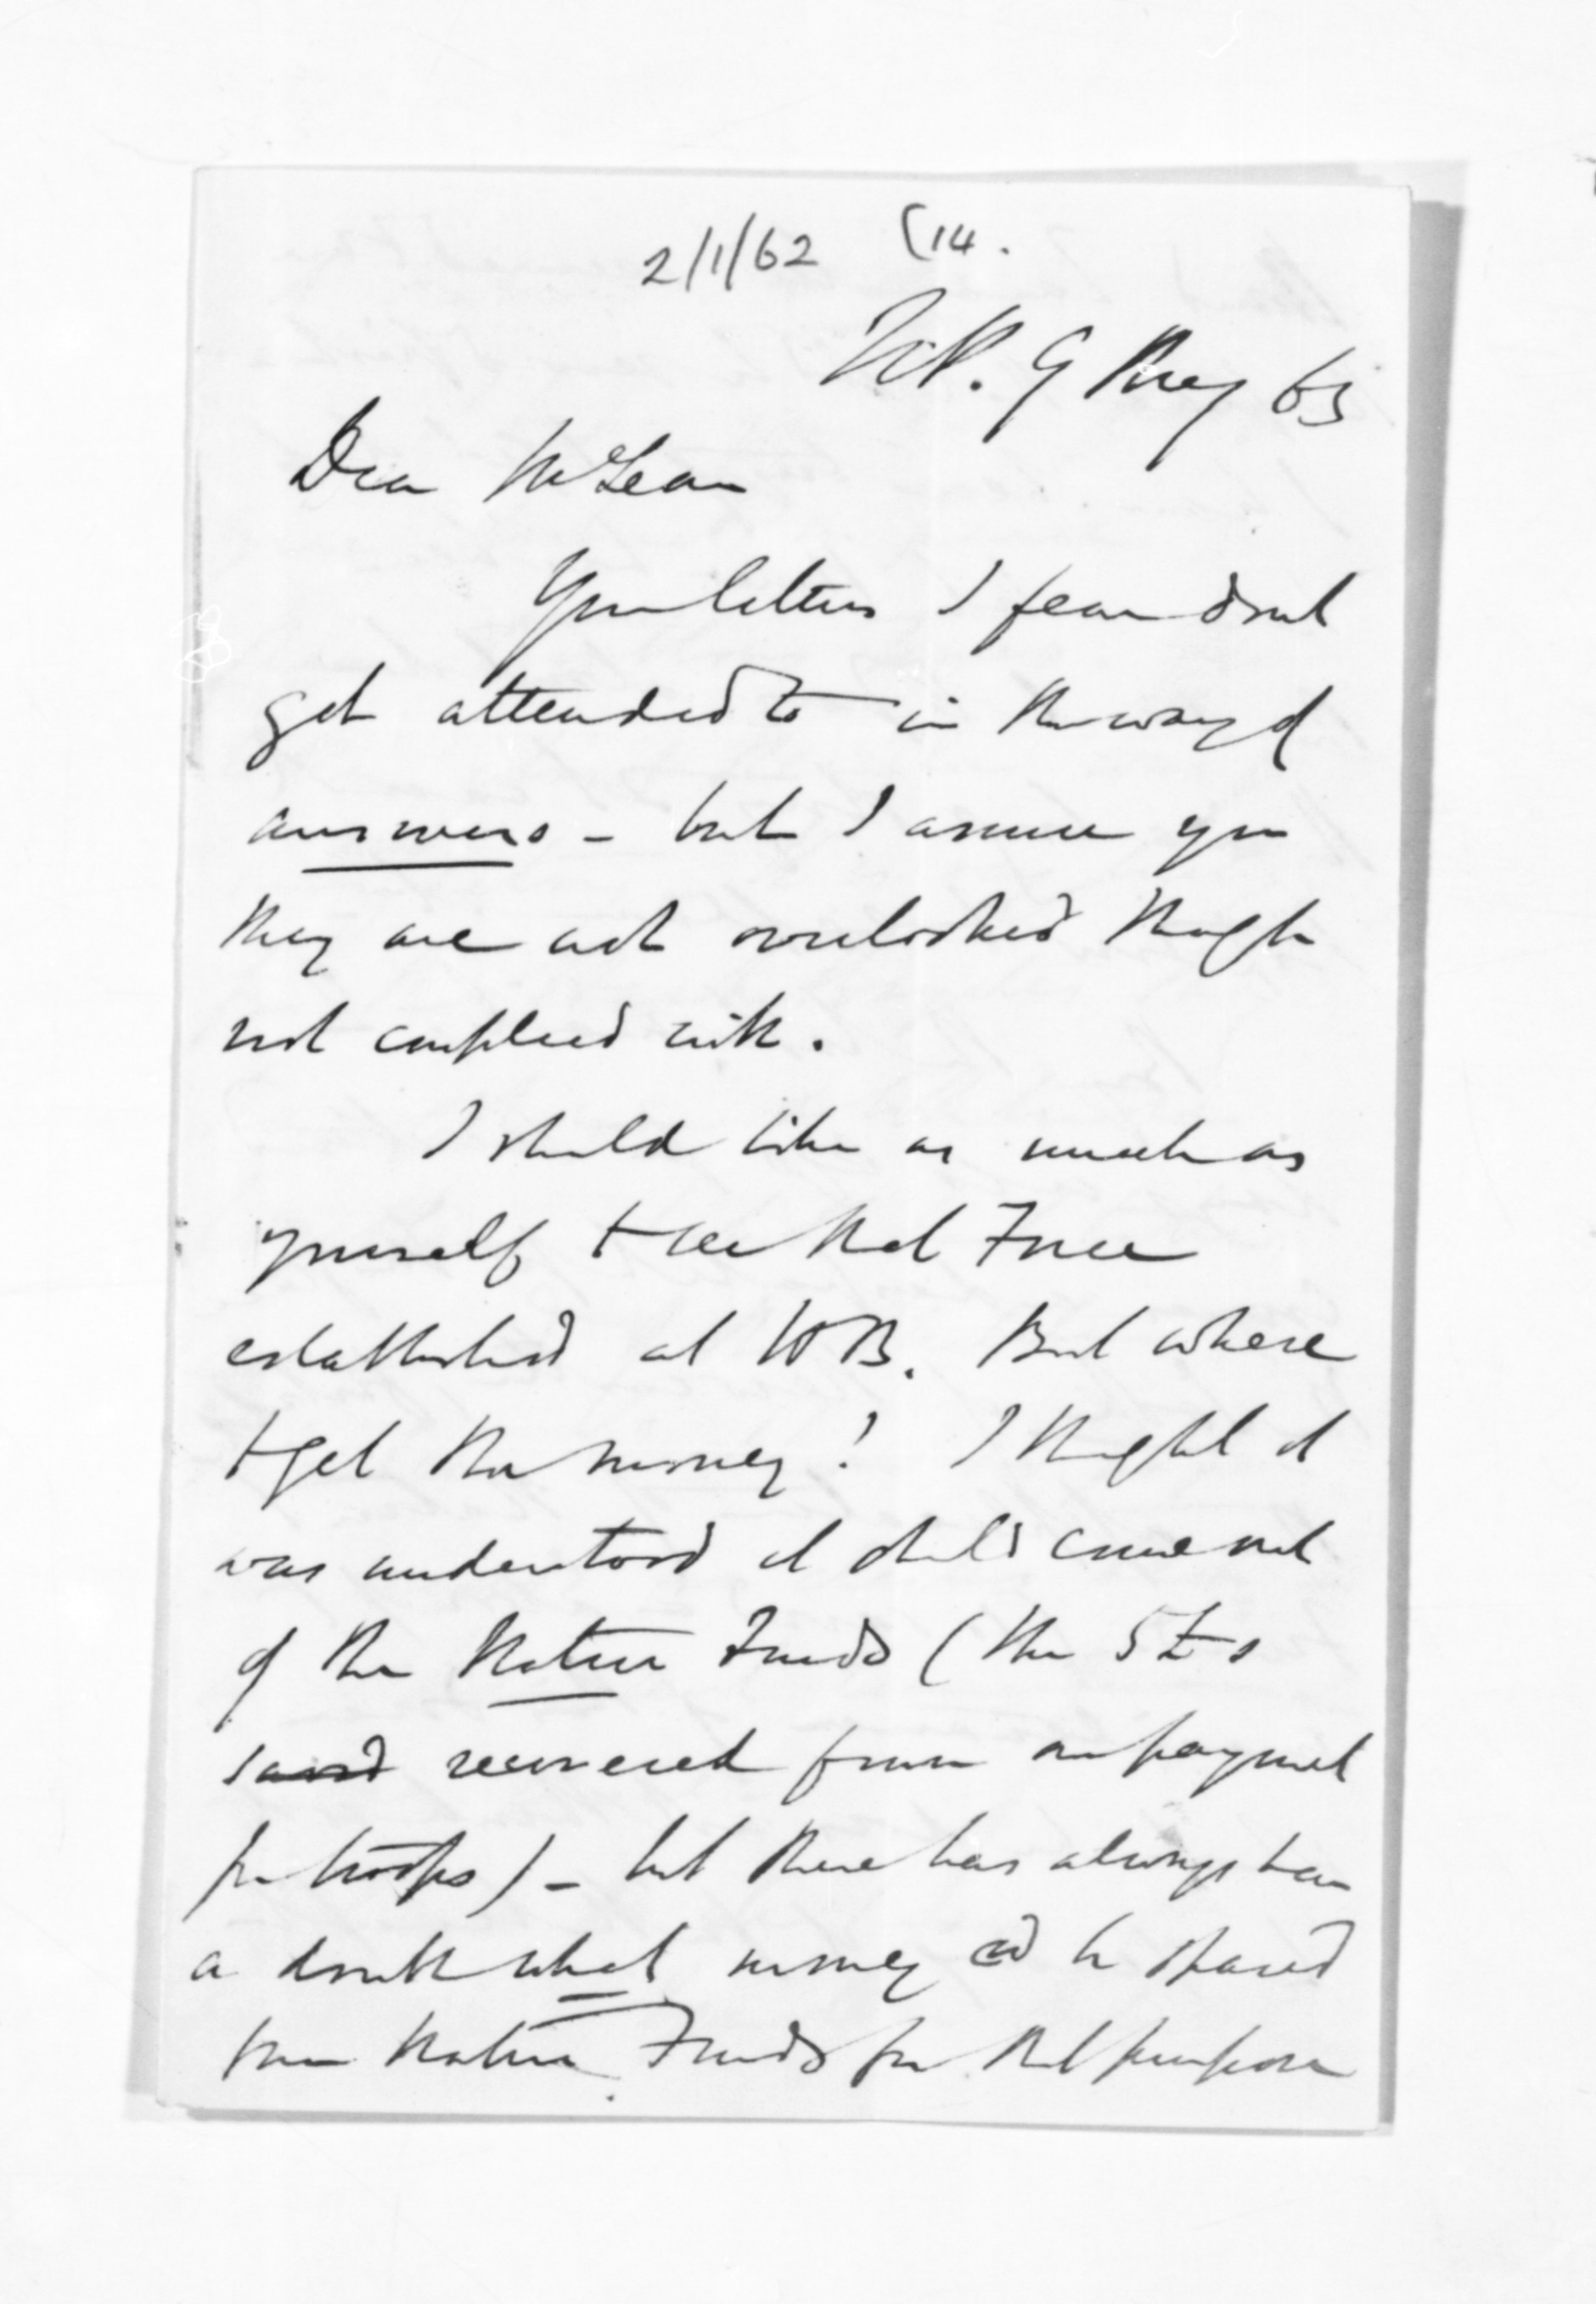 2/1/62 (14.
9 May 63
Dear McLean
Your letters I fear dont
get attended to in the way of
answers - but I assure you
they are not overlooked though
not complied with.
I should like as much as
yourself to see that Force
established at HB. But where
to get the money! I thought it
was understood it should come out
of the Native Funds (the
saved recovered from payment
for troops) - but there has always been
a doubt what money cd be spared
from Native Funds for that purpose